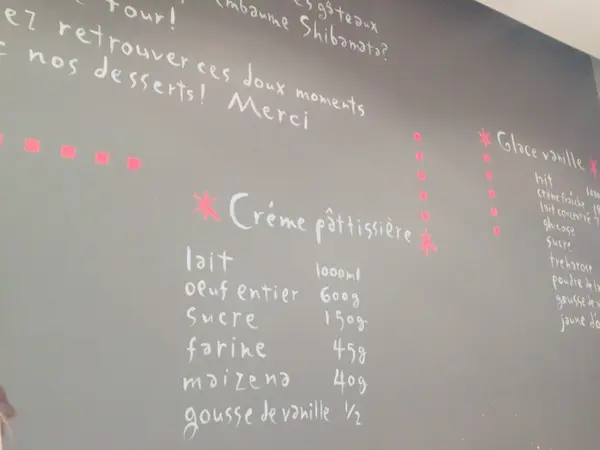 gâteaux
four! embaume Shibamata?
ez retrouver ces doux moments
nos desserts! Merci
Créme pâttissière
lait 1000ml
oeuf entier 600g
sucre 150g
farine 45g
maizena 40g
gousse de vanille 1/2
Glace vanille
lait
crème fraîche
lait concentré
glucose
sucre
trehalose
poudre de
gousse de
jaune